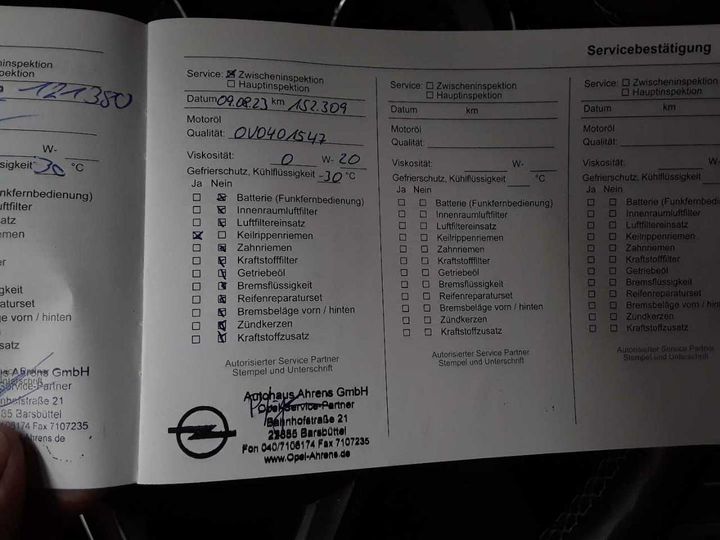 Servicebestätigung
ninspektion
pektion
121.380
W-
ssigkeit -30 °C
nkfernbedienung)
ftfilter
satz
emen
er
sigkeit
araturset
läge vorn / hinten
satz
Ahrens GmbH
Service-Partner
nhofstraße 21
85 Barsbüttel
Fax 7107235
Ahrens.de
Service: ☒ Zwischeninspektion
☐ Hauptinspektion
Datum 09.08.23 km 152.309
Motoröl
Qualität: OV0401547
Viskosität: 0 W- 20
Gefrierschutz, Kühlflüssigkeit -30 °C
Ja Nein
☐ ☒ Batterie (Funkfernbedienung)
☐ ☒ Innenraumluftfilter
☐ ☒ Luftfiltereinsatz
☒ ☐ Keilrippenriemen
☐ ☒ Zahnriemen
☐ ☒ Kraftstofffilter
☐ ☒ Getriebeöl
☐ ☒ Bremsflüssigkeit
☐ ☒ Reifenreparaturset
☐ ☒ Bremsbeläge vorn / hinten
☐ ☒ Zündkerzen
☐ ☒ Kraftstoffzusatz
Autorisierter Service Partner
Stempel und Unterschrift
Autohaus Ahrens GmbH
Opel-Service-Partner
Bahnhofstraße 21
22885 Barsbüttel
Fon 040/7106174 Fax 7107235
www.Opel-Ahrens.de
Service: ☐ Zwischeninspektion
☐ Hauptinspektion
Datum km
Motoröl
Qualität:
Viskosität: W-
Gefrierschutz, Kühlflüssigkeit °C
Ja Nein
☐ ☐ Batterie (Funkfernbedienung)
☐ ☐ Innenraumluftfilter
☐ ☐ Luftfiltereinsatz
☐ ☐ Keilrippenriemen
☐ ☐ Zahnriemen
☐ ☐ Kraftstofffilter
☐ ☐ Getriebeöl
☐ ☐ Bremsflüssigkeit
☐ ☐ Reifenreparaturset
☐ ☐ Bremsbeläge vorn / hinten
☐ ☐ Zündkerzen
☐ ☐ Kraftstoffzusatz
Autorisierter Service Partner
Stempel und Unterschrift
Service: ☐ Zwischeninspektion
☐ Hauptinspektion
Datum km
Motoröl
Qualität:
Viskosität: W-
Gefrierschutz, Kühlflüssigkeit
Ja Nein
☐ ☐ Batterie (Funkfernbedien
☐ ☐ Innenraumluftfilter
☐ ☐ Luftfiltereinsatz
☐ ☐ Keilrippenriemen
☐ ☐ Zahnriemen
☐ ☐ Kraftstofffilter
☐ ☐ Getriebeöl
☐ ☐ Bremsflüssigkeit
☐ ☐ Reifenreparaturset
☐ ☐ Bremsbeläge vorn / hinten
☐ ☐ Zündkerzen
☐ ☐ Kraftstoffzusatz
Autorisierter Service Partner
Stempel und Unterschrift